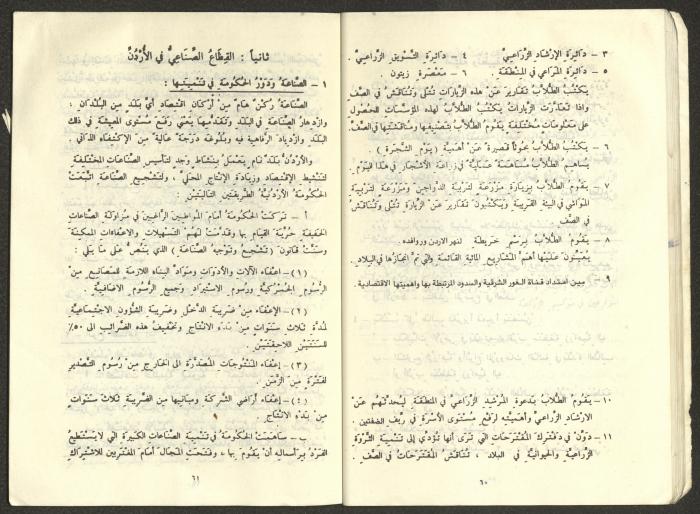 ٣ – دائرة الإرشاد الزراعي     ٤ – دائرة التسويق الزراعي .
٥ – دائرة المراعي في المنطقة .     ٦ – معصرة زيتون .
يكتب الطلاب تقارير عن هذه الزيارات تتلى وتناقش في الصف
واذا تعذرت الزيارات يكتب الطلاب لهذه المؤسسات للحصول
على معلومات مختلفة يقوم الطلاب بتصنيفها ومناقشتها في الصف .
٦ – يكتب الطلاب بحوثا قصيرة عن أهمية ( يوم الشجرة ) .
يساهم الطلاب مساهمة عملية في زراعة الأشجار في هذا اليوم .
٧ – يقوم الطلاب بزيارة مزرعة لتربية الدواجن ومزرعة لتربية
المواشي في البيئة القريبة ويكتبون تقارير عن الزيارة تتلى وتناقش
في الصف
٨ – يقوم الطلاب برسم خريطة لنهر الاردن وروافده .
يعينون عليها أهم المشاريع المائية القائمة والتي تم انجازها في البلاد .
٩ – مبين امتداد قناة الغور الشرقية والسدود المرتبطة بها واهميتها الاقتصادية .
١٠ – يقوم الطلاب بدعوة المرشد الزراعي في المنطقة ليحدثهم عن
الارشاد الزراعي وأهميته لرفع مستوى الأسرة في ريف الضفتين .
١١ – دون في دفترك المقترحات التي ترى أنها تؤدي إلى تنمية الثروة
الزراعية والحيوانية في البلاد ، تناقش المقترحات في الصف .
٦٠
ثانيا : القطاع الصناعي في الأردن
١ – الصناعة ودور الحكومة في تنميتها :
الصناعة ركن هام من أركان اقتصاد أي بلد من البلدان ،
وازدهار الصناعة في البلد وتقدمها يعني رفع مستوى المعيشة في ذلك
البلد وازدياد الرفاهية فيه وبلوغه درجة عالية من الإكتفاء الذاتي .
والأردن بلد نام يعمل بنشاط وجد لتأسيس الصناعات المختلفة
لتنشيط الإقتصاد وزيادة الإنتاج المحلي ، ولتشجيع الصناعة اتبعت
الحكومة الأردنية الطريقتين التاليتين :
أ – تركت الحكومة أمام المواطنين الراغبين في مزاولة الصناعات
الخفيفة حرية القيام بها وقدمت لهم التسهيلات والاعفاءات الممكنة
وسنت قانون ( تشجيع وتوجيه الصناعة ) الذي ينص على ما يلي :
(١) – إعفاء الآلات والأدوات ومواد البناء اللازمة للمصانع من
الرسوم الجمركية ورسوم الاستيراد وجميع الرسوم الاضافية .
(٢) – الإعفاء من ضريبة الدخل وضريبة الشؤون الاجتماعية
لمدة ثلاث سنوات من بدء الانتاج وتخفيض هذه الضرائب الى ٥٠٪
للسنتين اللاحقتين .
(٣) – إعفاء المنتوجات المصدرة الى الخارج من رسوم التصدير
لفترة من الزمن .
(٤) – إعفاء أراضي الشركة ومبانيها من الضريبة ثلاث سنوات
من بدء الانتاج .
ب – ساهمت الحكومة في تنمية الصناعات الكبيرة التي لا يستطيع
الفرد برأسماله أن يقوم بها ، وفتحت المجال أمام المقتدرين للاشتراك
٦١